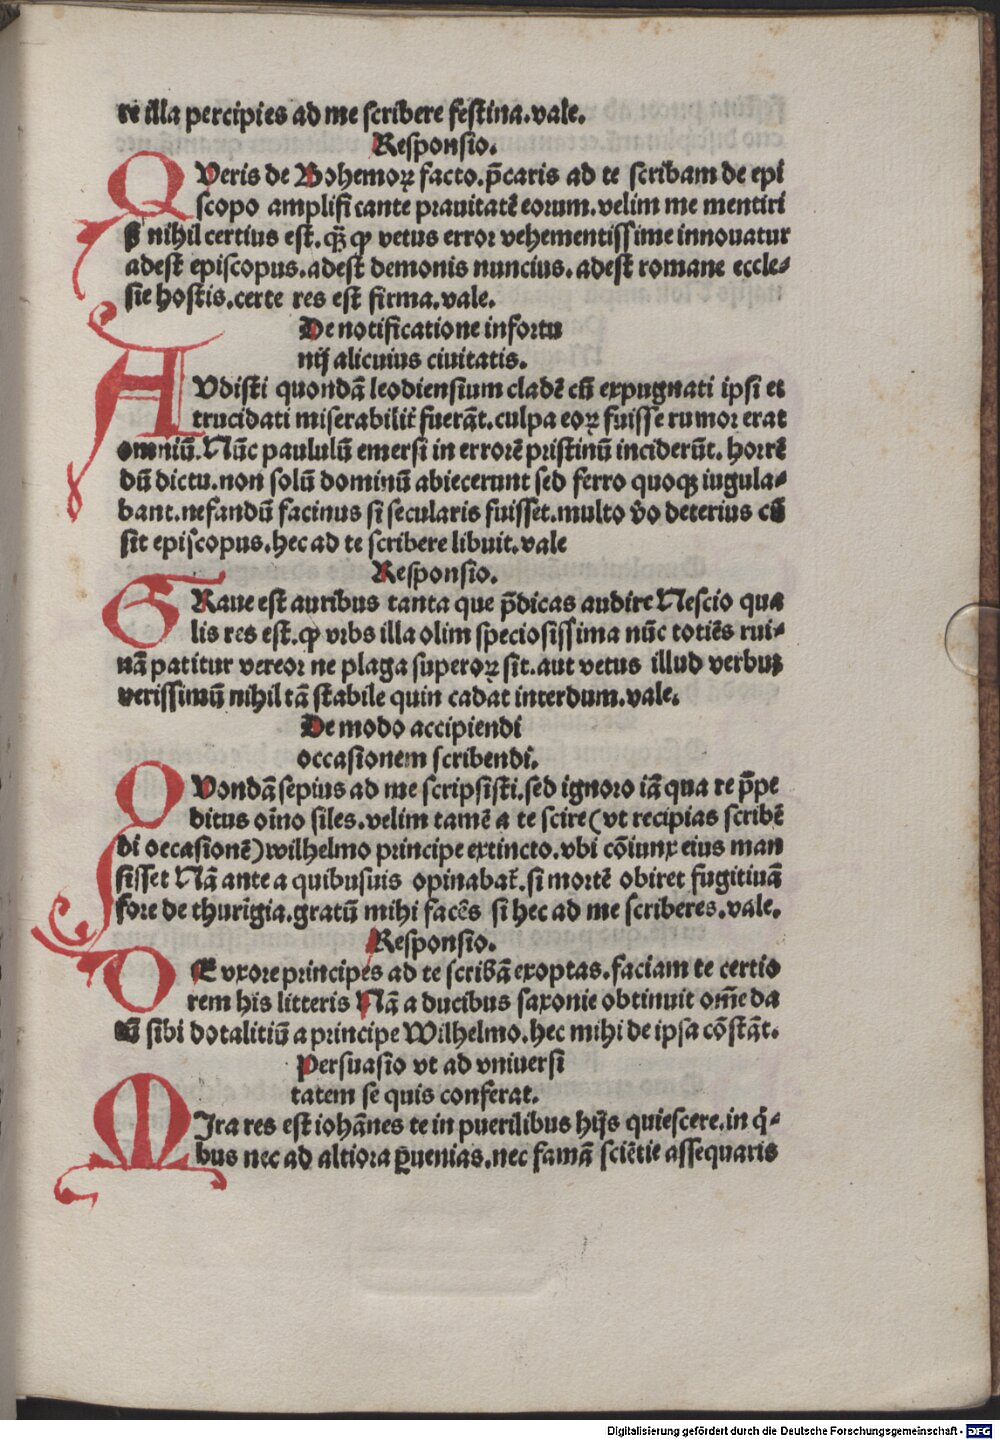 re illa percipies ad me scribere festina.vale.
Responsio.
QVeris de Bohemoꝝ facto.p̄caris ad te scribam de epi
scopo amplificante prauitatē eorum.velim me mentiri
nihil certius est.qꝫ ꝙ vetus error vehementissime innouatur
adest episcopus.adest demonis nuncius.adest romane eccle⸗
sie hostis.certe res est firma.vale.
De notificatione infortu
nij alicuius ciuitatis.
AVdisti quondā leodiensium cladē cū expugnati ipsi et
trucidati miserabilit̄ fuerāt.culpa eoꝝ fuisse rumor erat
omniū.Nūc paululū emersi in errorē pristinū inciderūt.horrē
dū dictu.non solū dominū abiecerunt sed ferro quoqꝫ iugula⸗
bant.nefandū facinus si secularis fuisset.multo v̄o deterius cū
sit episcopus.hec ad te scribere libuit.vale
Responsio.
GRaue est auribus tanta que p̄dicas audire Nescio qua
lis res est.ꝙ vrbs illa olim speciosissima nūc totiēs rui⸗
nā patitur vereor ne plaga superoꝝ sit.aut vetus illud verbuꝫ
verissimū nihil tā stabile quin cadat interdum.vale.
De modo accipiendi
occasionem scribendi.
QVondā sepius ad me scripsisti.sed ignoro iā qua re p̄pe
ditus oīno siles.velim tamē a te scire(vt recipias scribē
di occasionē)wilhelmo principe extincto.vbi cōiunx eius man
sisset Nā ante a quibusuis opinabat̄.si mortē obiret fugitiuā
fore de thuringia.gratū mihi facēs si hec ad me scriberes.vale.
Responsio.
DE vxore principes ad te scribā exoptas.faciam te certio
rem his litteris Nā a ducibus saxonie obtinuit om̄e da
tū sibi dotalitiū a principe Wilhelmo.hec mihi de ipsa cōstāt.
Persuasio vt ad vniuersi
tatem se quis conferat.
MIra res est iohānes te in puerilibus hijs quiescere.in q̄⸗
bus nec ad altiora ꝑuenias.nec famā sciētie assequaris
Digitalisierung gefördert durch die Deutsche Forschungsgemeinschaft - DFG